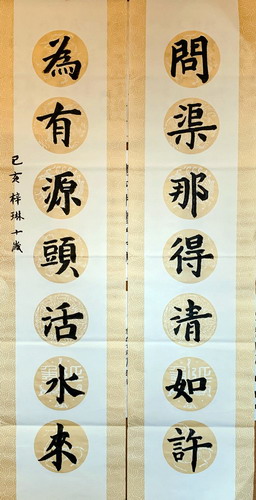 問渠那得清如許
為有源頭活水來
己亥 梓琳 十歲